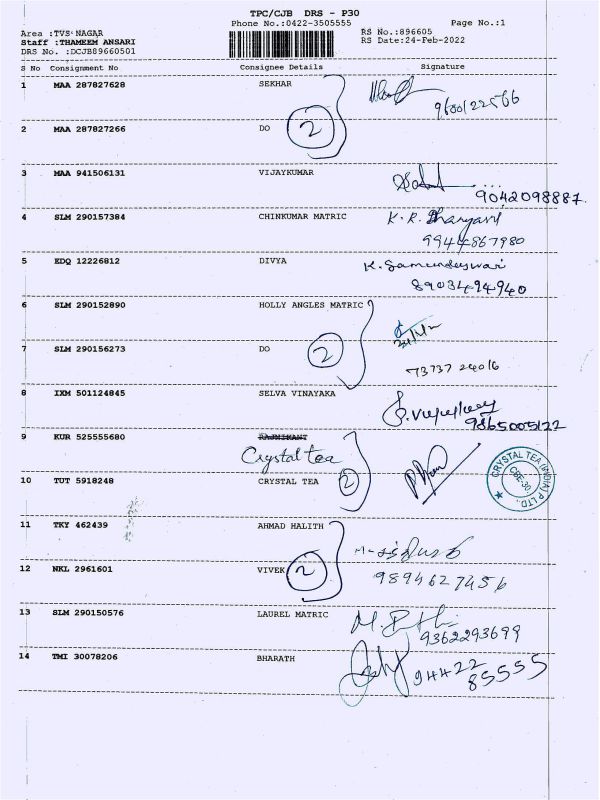 TPC/CJB DRS - P30
Phone No.:0422-3505555 Page No.:1
Area :TVS NAGAR RS No.:896605
Staff :THAMEEM ANSARI RS Date:24-Feb-2022
DRS No. :DCJB89660501
S No Consignment No Consignee Details Signature
1 MAA 287827628 SEKHAR
9600122566
2 MAA 287827266 DO 2
3 MAA 941506131 VIJAYKUMAR
9042098887.
4 SLM 290157384 CHINKUMAR MATRIC K. R.
9944867980
5 EDQ 12226812 DIVYA K. Samundeswari
8903494940
6 SLM 290152890 HOLLY ANGLES MATRIC
7 SLM 290156273 DO 2
73737 24016
8 IXM 501124845 SELVA VINAYAKA
9865005122
9 KUR 525555680 RAJNIKANT
Crystal tea
CRYSTAL TEA (INDIA) P LTD.
CBE-30.
10 TUT 5918248 CRYSTAL TEA 2
11 TKY 462439 AHMAD HALITH
12 NKL 2961601 VIVEK 2
9894627456
13 SLM 290150576 LAUREL MATRIC
9362293699
14 TMI 30078206 BHARATH
94422
85555